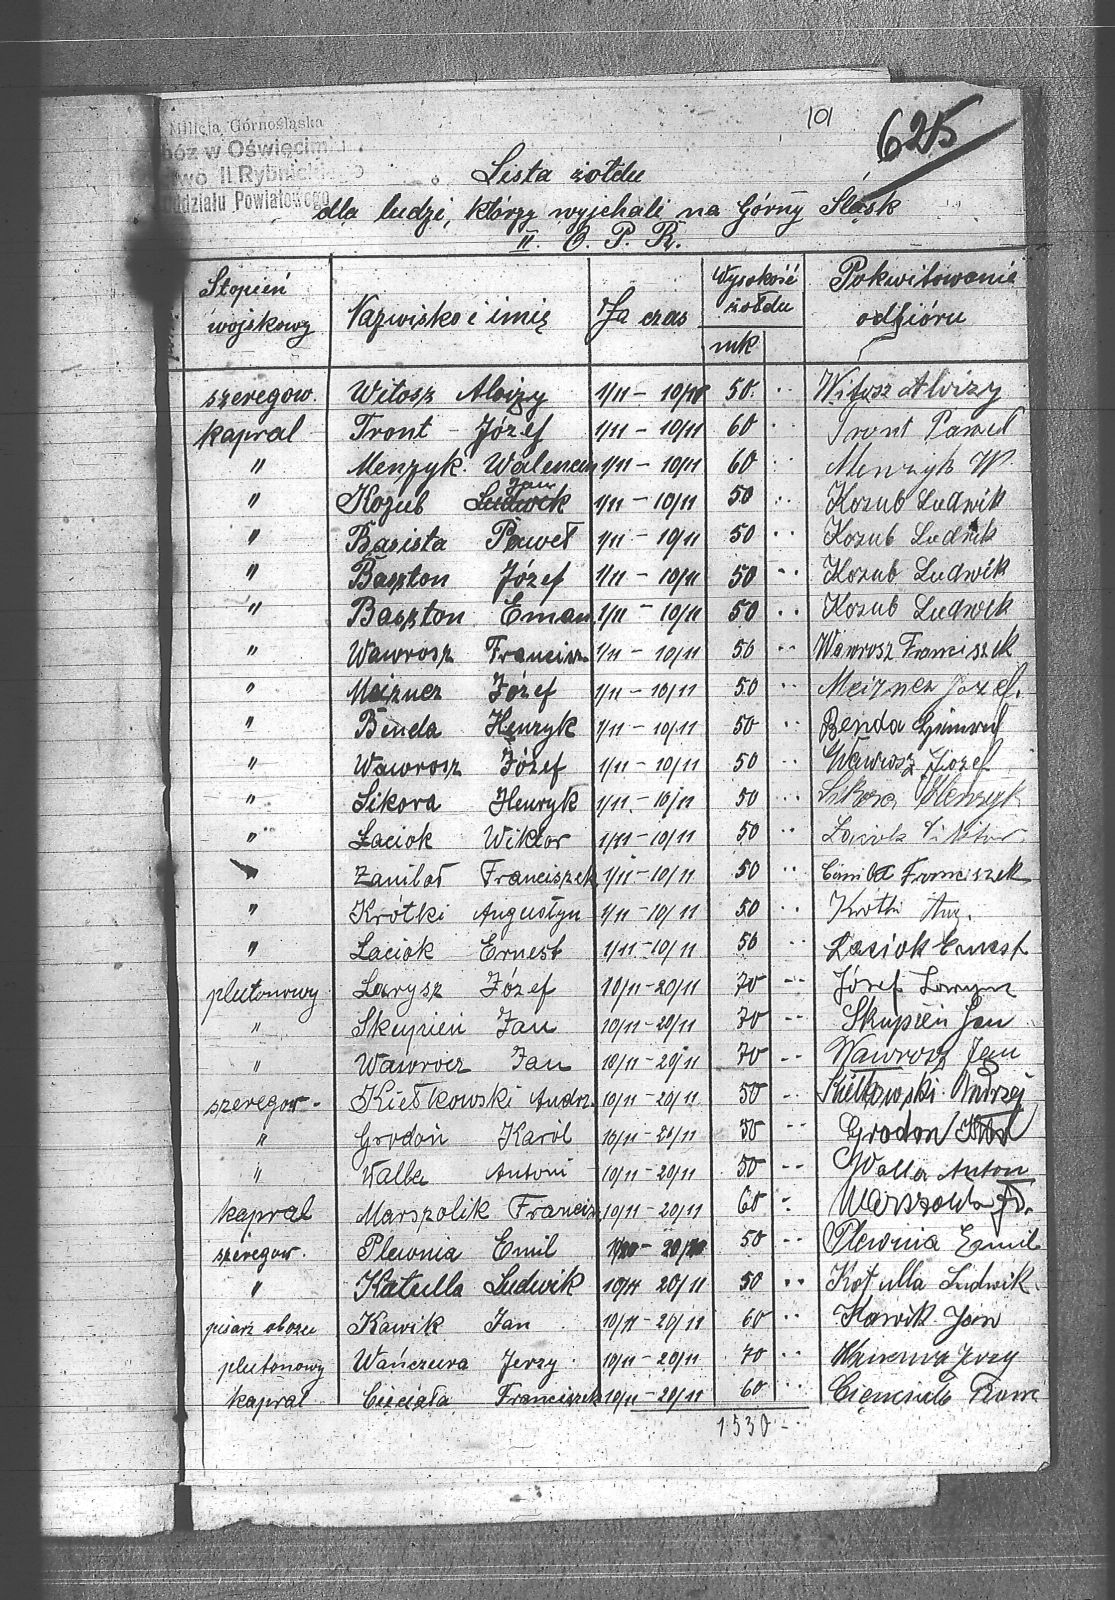 101
625
Milicja Górnośląska
óz w Oświęcimiu
two II. Rybnickiego
ddziału Powiatowego
Lista żołdu
dla ludzi, którzy wyjchali na Górny Śląsk
II. O. P. R.
Stopień wojskowy Nazwisko i imię Za czas Wysokość żołdu mk Pokwitowanie odbióru
szeregow. Witosz Aloizy 1/11 - 10/11 50 .. Witosz Aloizy
kapral Tront Józef 1/11 - 10/11 60 .. Tront Paweł
" Menzyk Walencin 1/11 - 10/11 60 .. Menzyk W
" Kozub Ludwik Jan 1/11 - 10/11 50 .. Kozub Ludwik
" Basista Paweł 1/11 - 10/11 50 .. Kozub Ludwik
" Baszton Józef 1/11 - 10/11 50 .. Kozub Ludwik
" Baszton Eman 1/11 - 10/11 50 .. Kozub Ludwik
" Wawrosz Francisz 1/11 - 10/11 50 .. Wawrosz Franciszek
" Meizner Józef 1/11 - 10/11 50 .. Meizner Józef.
" Benda Henryk 1/11 - 10/11 50 .. Benda
" Wawrosz Józef 1/11 - 10/11 50 .. Wawrosz Józef
" Sikora Henryk 1/11 - 10/11 50 .. Sikora Henryk
" Łaciok Wiktor 1/11 - 10/11 50 .. Łaciok Wiktor
" Zamiboł Franciszek 1/11 - 10/11 50 .. Franciszek
" Krótki Augustyn 1/11 - 10/11 50 .. Krótki Aug.
" Łaciok Ernest 1/11 - 10/11 50 .. Łaciok Ernest
plutonowy Larysz Józef 10/11 - 20/11 70 -- Józef Larysz
" Skupień Jan 10/11 - 20/11 70 -- Skupień Jan
" Wawrocz Jan 10/11 - 20/11 70 -- Wawrosz Jan
szeregow. Kiełkowski Andrz. 10/11 - 20/11 50 -- Kiełkowski Andrzej
" Grodoń Karol 10/11 - 20/11 50 -- Grodon
" Walla Antoni 10/11 - 20/11 50 -- Walla Anton
kapral Marszolik Francisz 10/11 - 20/11 60 -
szeregow. Plewnia Emil 50 -- Plewnia Emil
" Katulla Ludwik 10/11 20/11 50 -- Kotulla Ludwik.
pisarz obozu Kawik Jan 10/11 - 20/11 60 -- Kawik Jan
plutonowy Wańczura Jerzy 10/11 - 20/11 70 -- Jerzy
kapral Cięciała Franciszek 10/11 - 20/11 60 --
1530 -